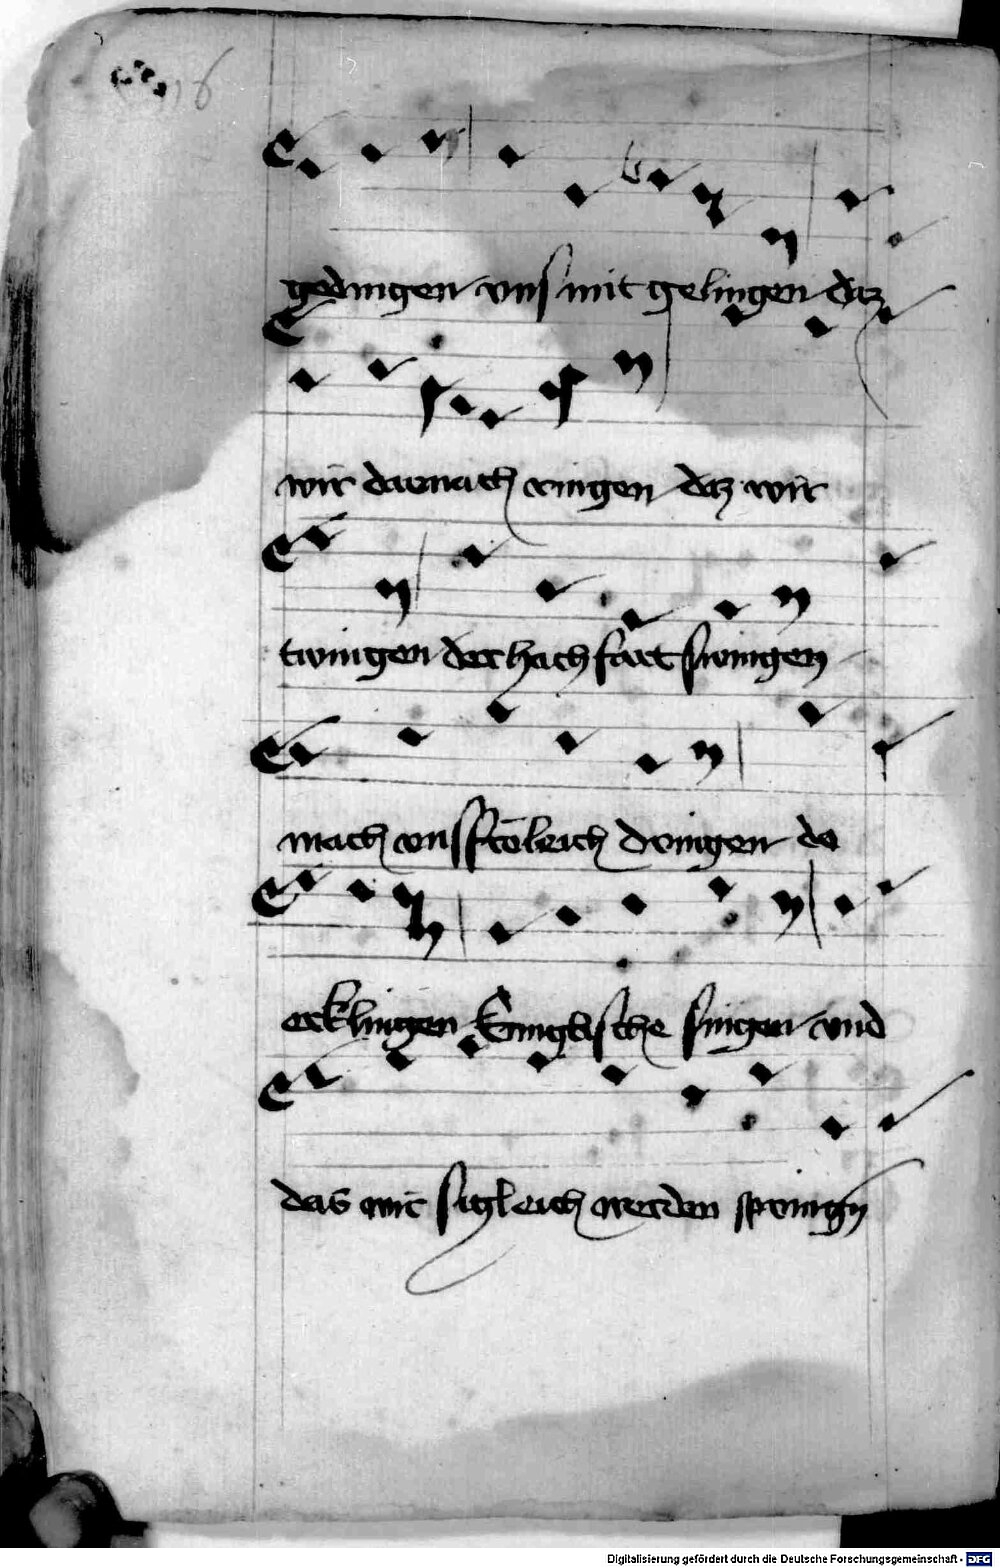 gedingen vns mit gelingen daz
wir darnach ringen daz wir
twingen der hachfart swingen
mach vns froleich dringen do
erklingen Englische singen vnd
das wir sigleich werden springen
Digitalisierung gefördert durch die Deutsche Forschungsgemeinschaft - DFG